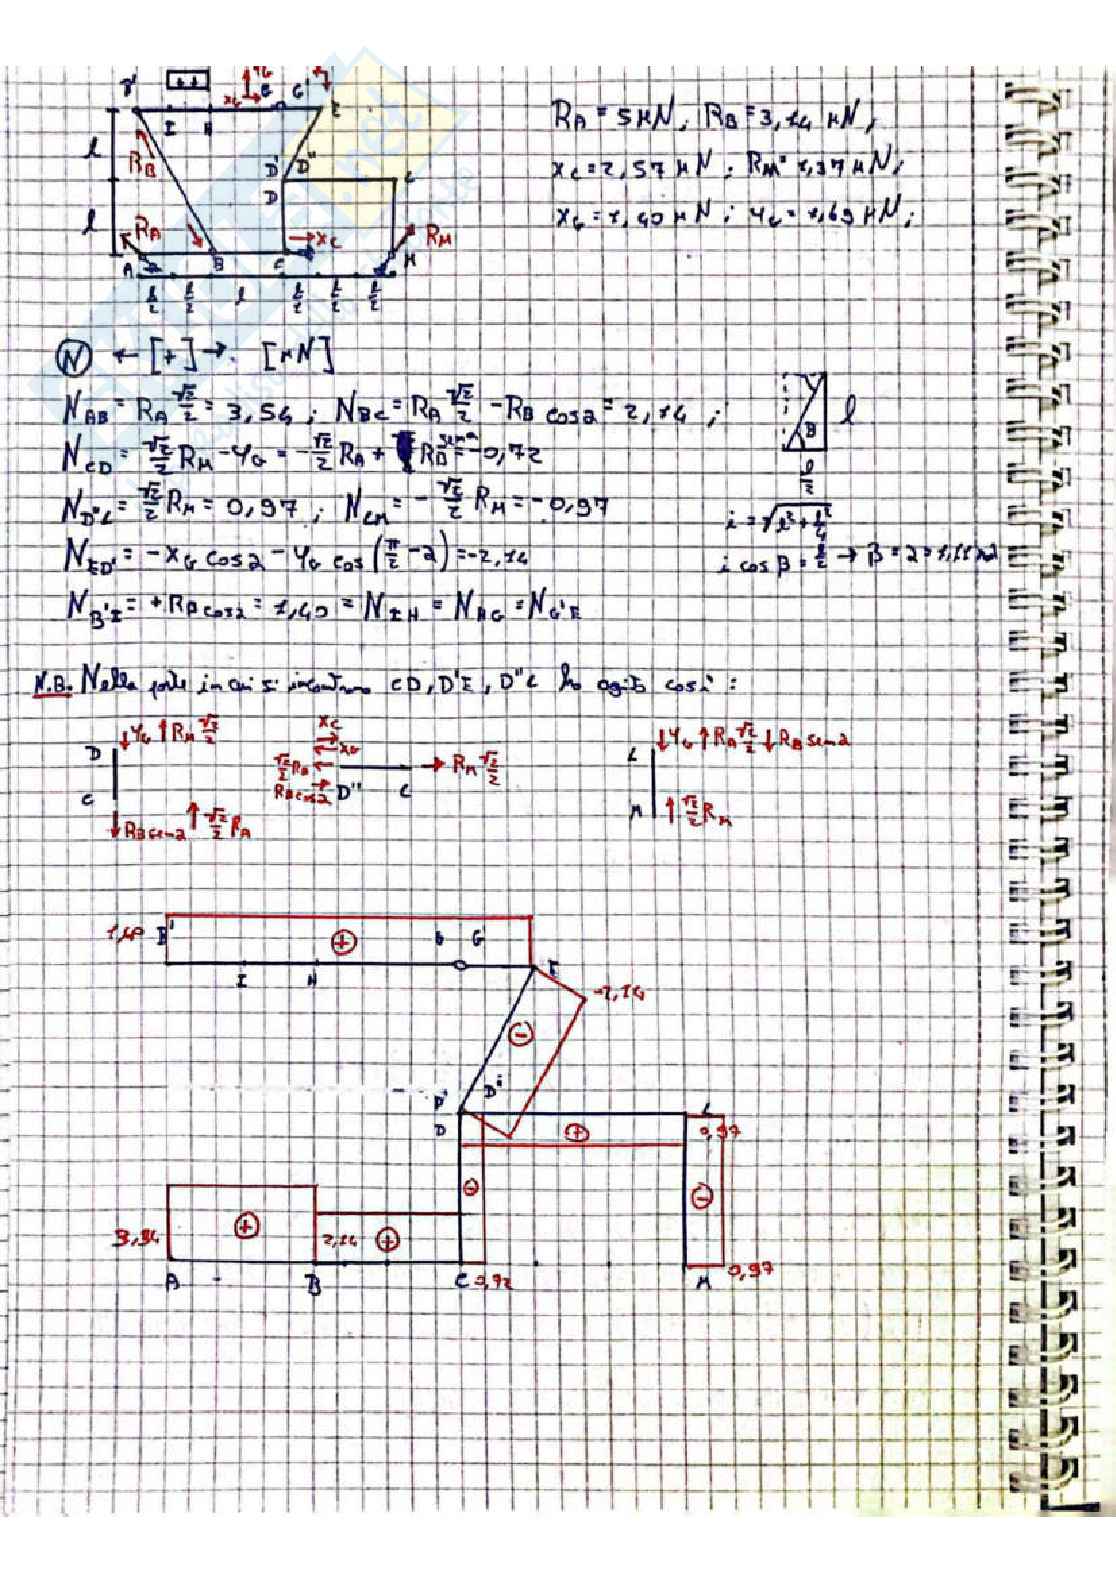 B' G G' E
I H
l
R_B
D' D''
D L
l
R_A x_C R_M
A B C M
l/2 l/2 l l/2 l/2 l/2
R_A = 5 KN; R_B = 3,14 KN;
x_C = 2,57 KN; R_M = 1,37 KN;
x_G = 1,40 KN; Y_G = 1,69 KN;
N ← [+] → [KN]
N_AB = R_A √2/2 = 3,54; N_BC = R_A √2/2 - R_B cos2 = 2,14;
N_CD = √2/2 R_M - Y_G = -√2/2 R_A + R_B sen2 = -0,72
N_D''L = √2/2 R_M = 0,97; N_LM = -√2/2 R_M = -0,97
N_ED' = -x_G cos2 - Y_G cos(π/2 - 2) = -2,14
N_B'I = +R_B cos2 = 1,40 = N_IH = N_HG = N_G'E
B l
l/2
i = √l² + l²/4
i cos β = l/2 → β = 2 = 1,11 rad
N.B. Nella parte in cui si incontrano CD, D'E, D''L ho agito così:
D ↓Y_G ↑R_M √2/2
C
↓R_B sen2 ↑√2/2 R_A
x_C
x_G
√2/2 R_A
R_B cos2 D'' L → R_M √2/2
L ↓Y_G ↑R_A √2/2 ↓R_B sen2
M ↑√2/2 R_M
1,40 B' + G G'
I H E
-2,14
-
D' D''
D L
+ 0,97
-
-
3,54 + 2,14 +
A B C 0,72 M 0,97